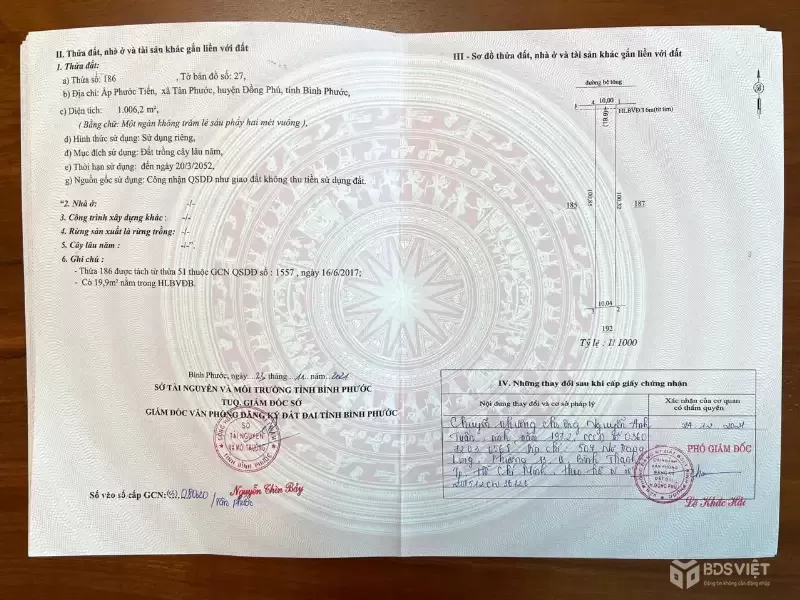 II. Thửa đất, nhà ở và tài sản khác gắn liền với đất
1. Thửa đất:
a) Thửa số: 186 , Tờ bản đồ số: 27,
b) Địa chỉ: Ấp Phước Tiến, xã Tân Phước, huyện Đồng Phú, tỉnh Bình Phước,
c) Diện tích: 1.006,2 m²,
( Bằng chữ: Một ngàn không trăm lẻ sáu phẩy hai mét vuông ),
d) Hình thức sử dụng: Sử dụng riêng,
đ) Mục đích sử dụng: Đất trồng cây lâu năm,
e) Thời hạn sử dụng: đến ngày 20/3/2052,
g) Nguồn gốc sử dụng: Công nhận QSDĐ như giao đất không thu tiền sử dụng đất.
“2. Nhà ở: -/-
3. Công trình xây dựng khác : -/-
4. Rừng sản xuất là rừng trồng: -/-
5. Cây lâu năm : -/-”.
6. Ghi chú :
- Thửa 186 được tách từ thửa 51 thuộc GCN QSDĐ số : 1557 , ngày 16/6/2017;
- Có 19,9m² nằm trong HLBVĐB.
Bình Phước, ngày 23 tháng 11 năm 2021
SỞ TÀI NGUYÊN VÀ MÔI TRƯỜNG TỈNH BÌNH PHƯỚC
TUQ. GIÁM ĐỐC SỞ
GIÁM ĐỐC VĂN PHÒNG ĐĂNG KÝ ĐẤT ĐAI TỈNH BÌNH PHƯỚC
SỞ
TÀI NGUYÊN
VÀ MÔI TRƯỜNG
TỈNH BÌNH PHƯỚC
Nguyễn Chín Bảy
Số vào sổ cấp GCN:
/Tân Phước
III - Sơ đồ thửa đất, nhà ở và tài sản khác gắn liền với đất
đường bê tông
4 10,00 1
HLBVĐB 6m(từ tim)
185 100,85 100,32 187
3 10,04 2
192
Tỷ lệ : 1/ 1000
IV. Những thay đổi sau khi cấp giấy chứng nhận
Nội dung thay đổi và cơ sở pháp lý
Xác nhận của cơ quan có thẩm quyền
Chuyển nhượng cho ông Nguyễn Anh
Tuấn, sinh năm 1972, CCCD số 0360
địa chỉ 507
Long, Phường 13, Q. Bình Thạnh
Tp. Hồ Chí Minh, theo hồ sơ số
2021
PHÓ GIÁM ĐỐC
CHI NHÁNH
VĂN PHÒNG
ĐĂNG KÝ
ĐẤT ĐAI
ĐỒNG PHÚ
Lê Khắc Hải
BDSVIỆT
Đăng tin không cần đăng nhập